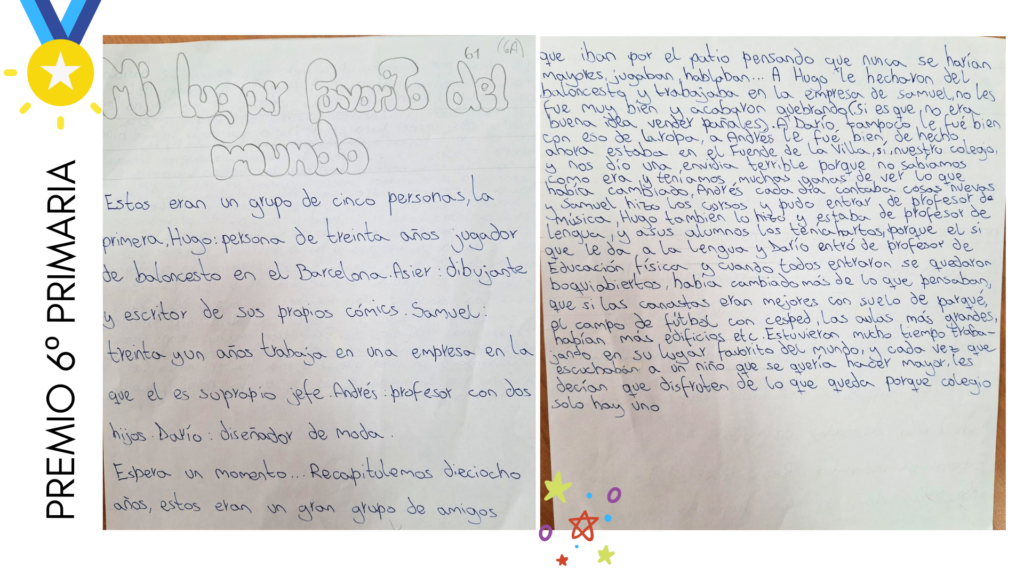 PREMIO 6º PRIMARIA
61 (6A)
Mi lugar favorito del
mundo
Estos eran un grupo de cinco personas, la
primera, Hugo: persona de treinta años jugador
de baloncesto en el Barcelona. Asier: dibujante
y escritor de sus propios cómics. Samuel:
treinta y un años trabaja en una empresa en la
que el es su propio jefe. Andrés: profesor con dos
hijos. Darío: diseñador de moda.
Espera un momento... Recapitulemos dieciocho
años, estos eran un gran grupo de amigos
que iban por el patio pensando que nunca se harían
mayores, jugaban, hablaban... A Hugo le hecharon del
baloncesto y trabajaba en la empresa de Samuel, no les
fue muy bien y acabaron quebrando (si es que no era
buena idea vender pañales). A Darío tampoco le fué bien
con eso de la ropa, a Andrés le fue bien, de hecho
ahora estaba en el Fuende de la Villa, sí, nuestro colegio,
y nos dio una envidia terrible porque no sabíamos
como era y teníamos muchas ganas de ver lo que
había cambiado, Andrés cada día contaba cosas nuevas
y Samuel hizo los cursos y pudo entrar de profesor de
música, Hugo también lo hizo y estaba de profesor de
lengua, y a sus alumnos los tenía hartos, porque el si
que le da a la lengua y Darío entró de profesor de
Educación física y cuando todos entraron se quedaron
boquiabiertos, había cambiado más de lo que pensaban,
que si las canastas eran mejores con suelo de parqué,
el campo de fútbol con cesped, las aulas más grandes,
habían más edificios etc. Estuvieron mucho tiempo traba-
jando en su lugar favorito del mundo, y cada vez que
escuchaban a un niño que se quería hacer mayor, les
decían que disfruten de lo que queda porque colegio
solo hay uno